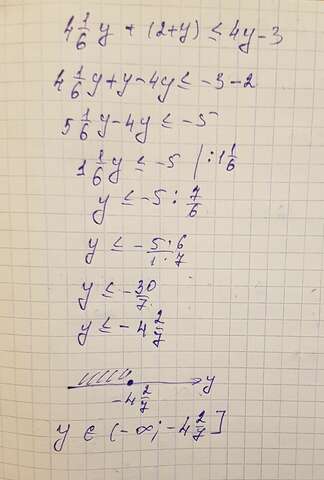 4 1/6 y + (2+y) ≤ 4y-3
4 1/6 y+y-4y ≤ -3-2
5 1/6 y-4y ≤ -5
1 1/6 y ≤ -5 | :1 1/6
y ≤ -5 : 7/6
y ≤ - 5·6/1·7
y ≤ - 30/7
y ≤ -4 2/7
y
-4 2/7
y ∈ (-∞; -4 2/7]